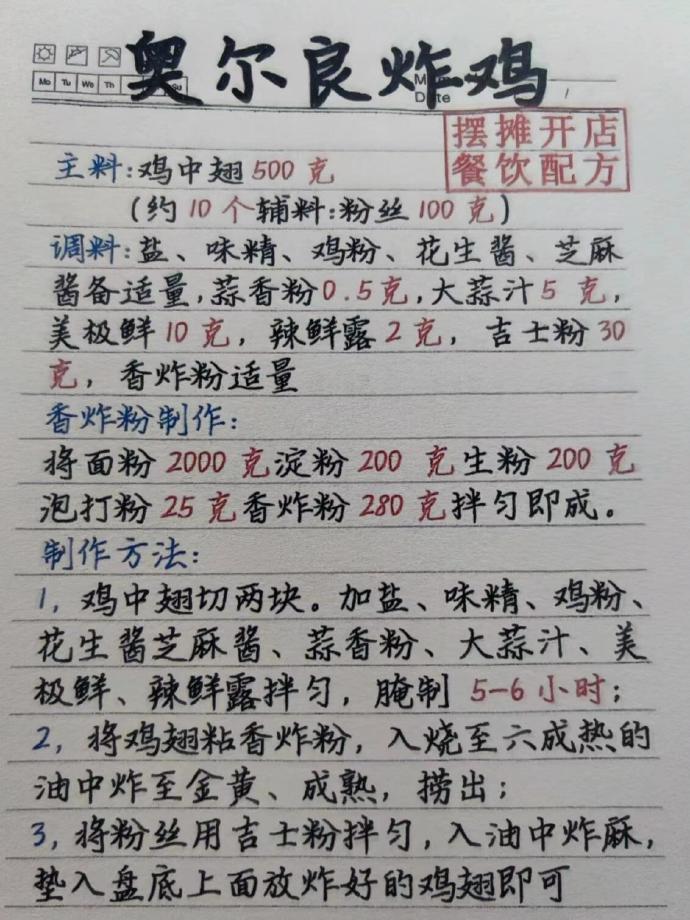 奥尔良炸鸡
Mo Tu We Th Su
Date
摆摊开店
餐饮配方
主料:鸡中翅500克
(约10个辅料:粉丝100克)
调料:盐、味精、鸡粉、花生酱、芝麻
酱备适量,蒜香粉0.5克,大蒜汁5克,
美极鲜10克,辣鲜露2克,吉士粉30
克,香炸粉适量
香炸粉制作:
将面粉2000克淀粉200克生粉200克
泡打粉25克香炸粉280克拌匀即成。
制作方法:
1,鸡中翅切两块。加盐、味精、鸡粉、
花生酱芝麻酱、蒜香粉、大蒜汁、美
极鲜、辣鲜露拌匀,腌制5-6小时;
2,将鸡翅粘香炸粉,入烧至六成热的
油中炸至金黄、成熟,捞出;
3,将粉丝用吉士粉拌匀,入油中炸麻,
垫入盘底上面放炸好的鸡翅即可